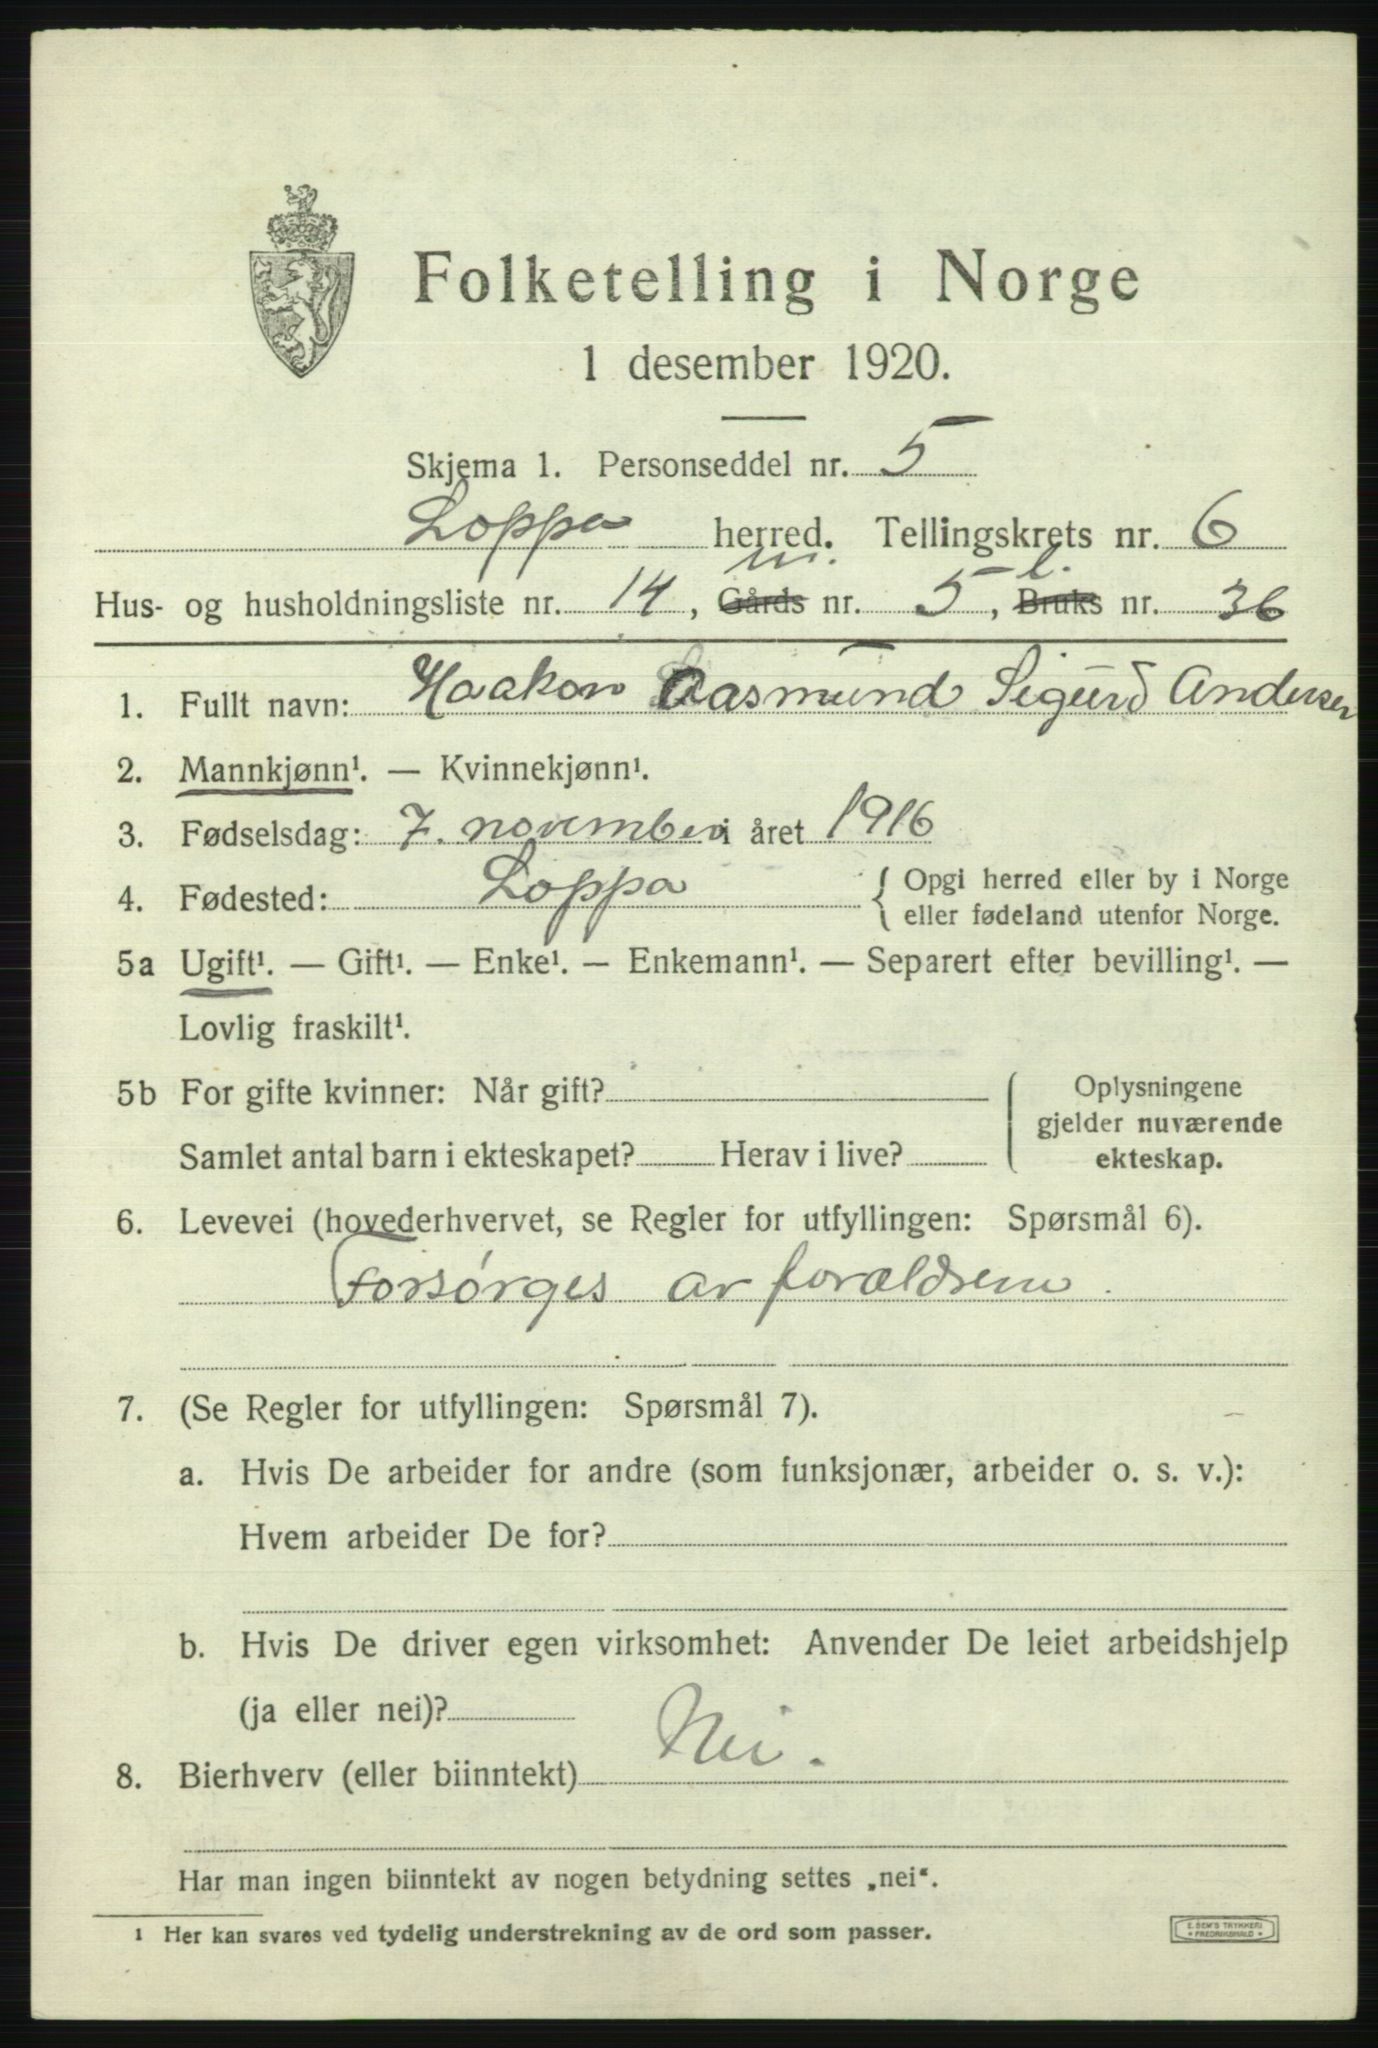 Folketelling i Norge
1 desember 1920.
Skjema 1. Personseddel nr. 5
Loppa herred. Tellingskrets nr. 6
m. l.
Hus- og husholdningsliste nr. 14, Gårds nr. 5, Bruks nr. 36
1. Fullt navn: Haakon Aasmund Sigurd Andersen
2. Mannkjønn¹. — Kvinnekjønn¹.
3. Fødselsdag: 7. november i året 1916
4. Fødested: Loppa { Opgi herred eller by i Norge
eller fødeland utenfor Norge.
5a Ugift¹. — Gift¹. — Enke¹. — Enkemann¹. — Separert efter bevilling¹. —
Lovlig fraskilt¹.
5b For gifte kvinner: Når gift?
Samlet antal barn i ekteskapet? Herav i live?
Oplysningene
gjelder nuværende
ekteskap.
6. Levevei (hovederhvervet, se Regler for utfyllingen: Spørsmål 6).
Forsørges av forældrene.
7. (Se Regler for utfyllingen: Spørsmål 7).
a. Hvis De arbeider for andre (som funksjonær, arbeider o. s. v.):
Hvem arbeider De for?
b. Hvis De driver egen virksomhet: Anvender De leiet arbeidshjelp
(ja eller nei)?
8. Bierhverv (eller biinntekt) Nei.
Har man ingen biinntekt av nogen betydning settes „nei“.
¹ Her kan svares ved tydelig understrekning av de ord som passer.
E. SEM'S TRYKKERI
FREDRIKSHALD